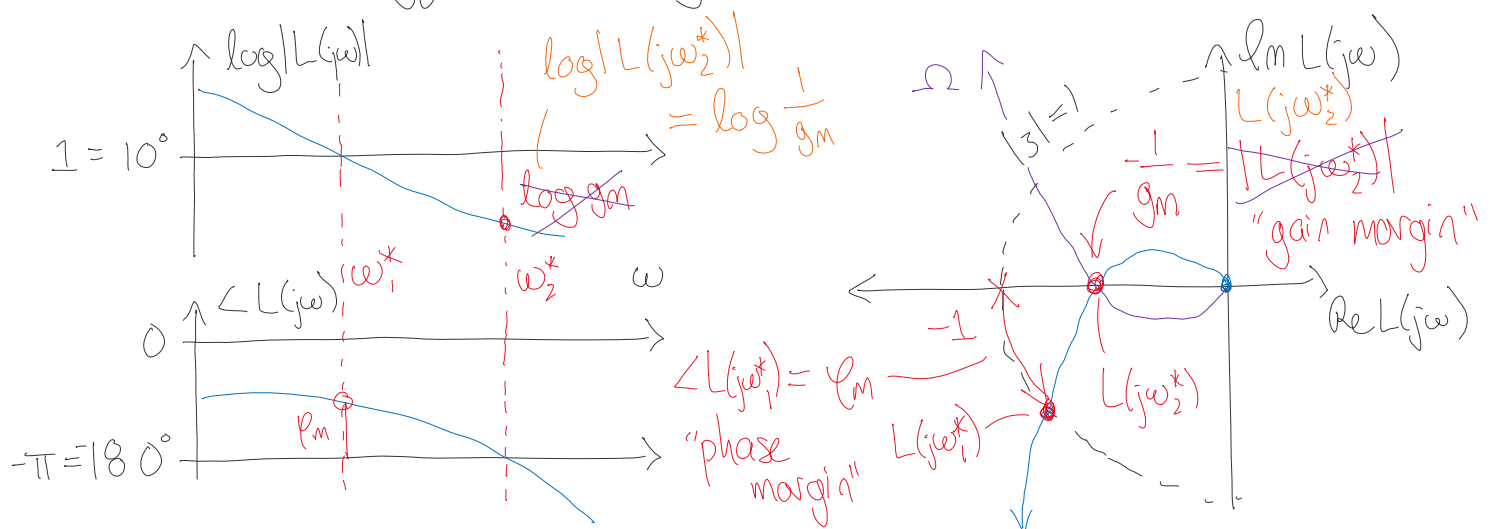 log|L(jω)|
log|L(jω₂*)|
= log 1/gm
1 = 10°
log gm
ω₁*
ω₂*
ω
∠L(jω)
0
φm
-π = 180°
∠L(jω₁*) = φm
"phase
margin"
Ω
|z|=1
Im L(jω)
L(jω₂*)
-1/gm = |L(jω₂*)|
"gain margin"
-1
Re L(jω)
L(jω₂*)
L(jω₁*)